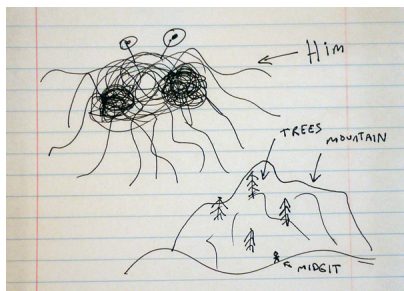 Him
TREES
MOUNTAIN
MIDGIT